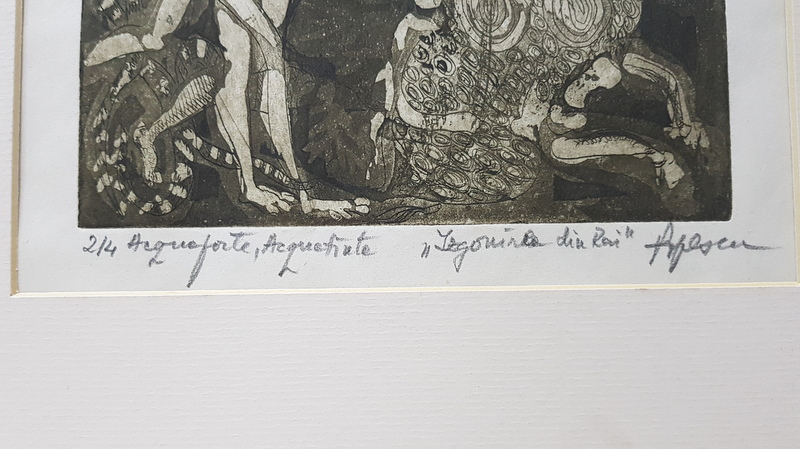 2/4 Acquaforte, Acquatinte „Izgonirea din Rai"